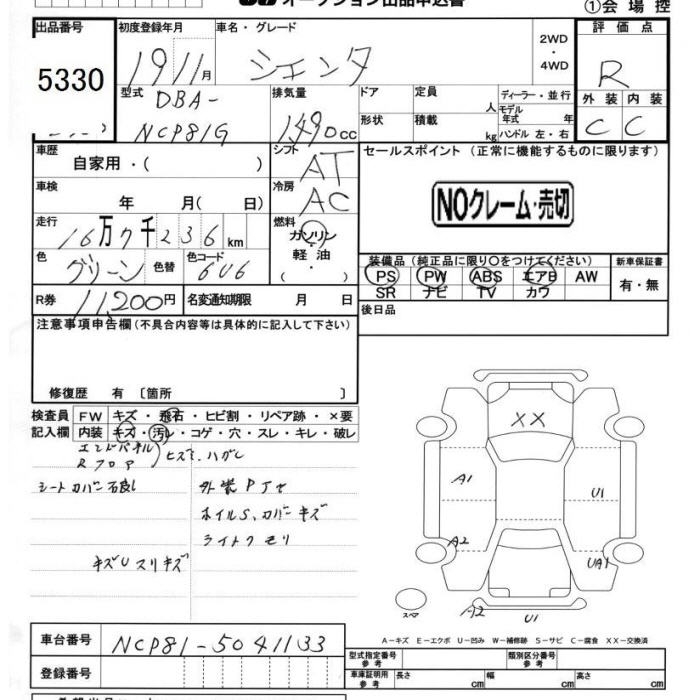 オークション出品申込書
①会場控
出品番号 初度登録年月 車名・グレード 2WD・4WD 評価点
5330 19 11月 シエンタ R
型式 DBA-NCP81G 排気量 1,490cc ドア 定員 人 ディーラー・並行 外装 内装
形状 積載 kg モデル年式 年 ハンドル 左・右 C C
車歴 自家用・( ) シフト AT セールスポイント (正常に機能するものに限ります)
車検 年 月( 日) 冷房 AC
NOクレーム・売切
走行 16万7千236km 燃料 ガソリン・軽油・( )
色 グリーン 色替 色コード 6U6
装備品(純正品に限り○をつけてください) 新車保証書
PS PW ABS エアB AW 有・無
SR ナビ TV カワ
R券 11,200円 名変通知期限 月 日 後日品
注意事項申告欄(不具合内容等は具体的に記入して下さい)
修復歴 有 〔箇所 〕
検査員記入欄 FW キズ・飛石・ヒビ割・リペア跡・×要
内装 キズ・汚レ・コゲ・穴・スレ・キレ・破レ
エンドパネル
Rフロア
ヒズミ、ハガレ
シートカバー右良し
外装Pイセ
ホイルS、カバーキズ
ライトクモリ
キズUスリキズ
XX
A1
U1
A2
UA1
スペア
A2
U1
A-キズ E-エクボ U-凹み W-補修跡 S-サビ C-腐食 XX-交換済
車台番号 NCP81-5041133
登録番号
型式指定番号 参考 類別区分番号 参考
車庫証明用 参考 長さ cm 幅 cm 高さ cm